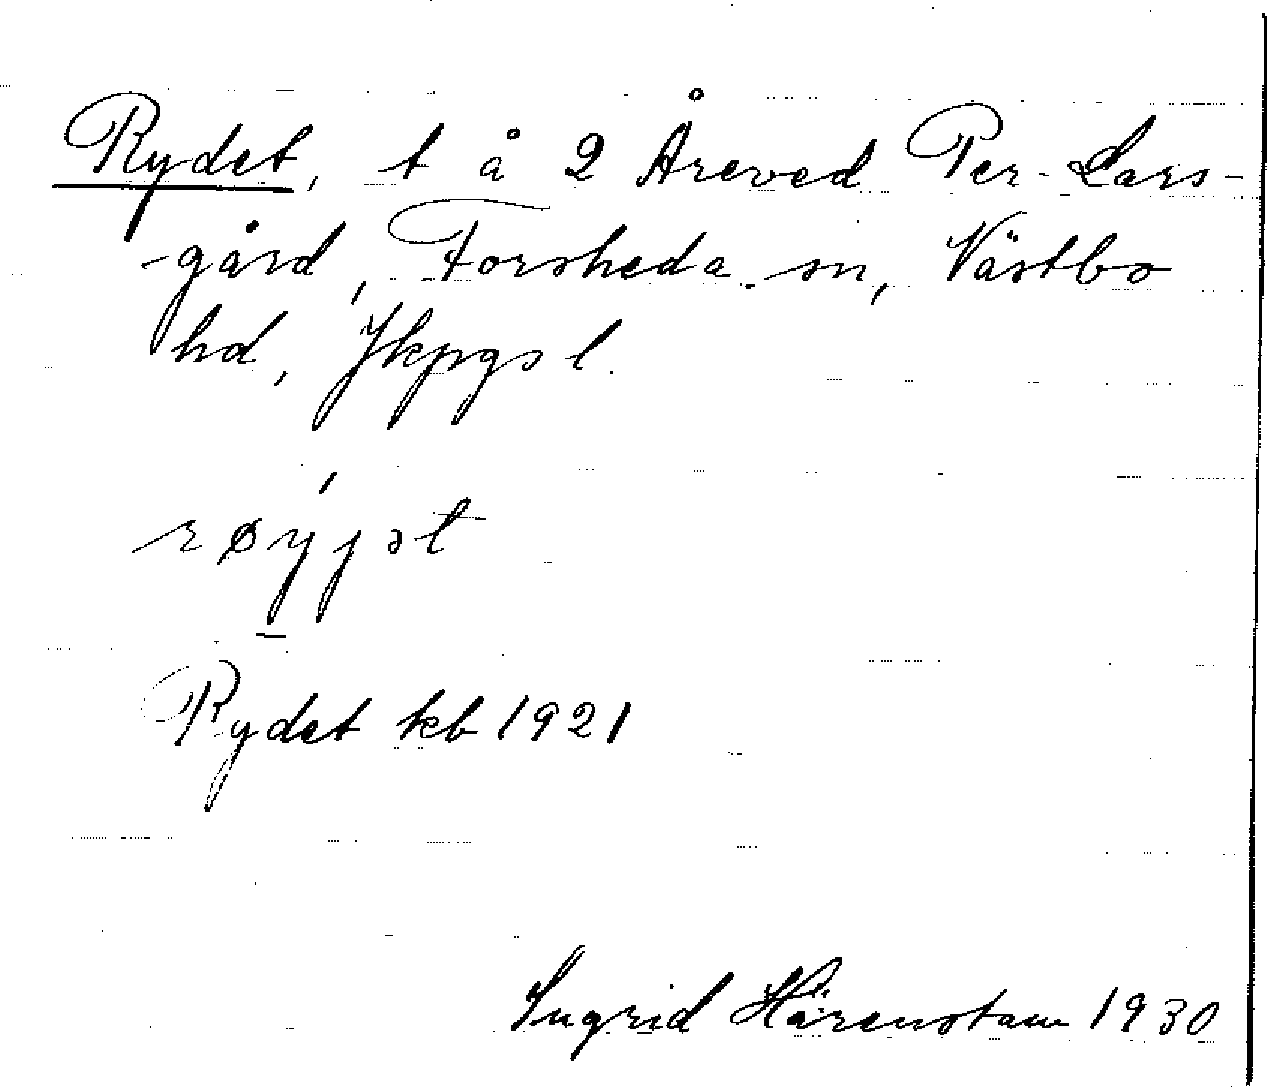 Rydet, t å 2 Åreved Per-Lars-
-gård, Forsheda sn, Västbo
hd, Jkpgs l.
røyjət
Rydet kb 1921
Ingrid Härenstam 1930